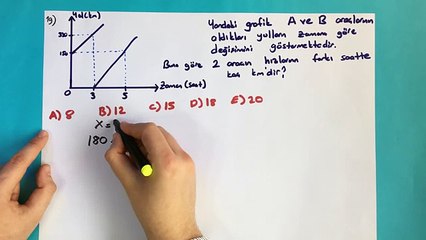 19)
Yol(km)
330
150
3
5
Zaman (saat)
Yandaki grafik A ve B araçlarının
aldıkları yolların zamana göre
değişimini göstermektedir.
Buna göre 2 aracın hızlarının farkı saatte
kaç km'dir?
A) 8 B) 12 C) 15 D) 18 E) 20
x =
180